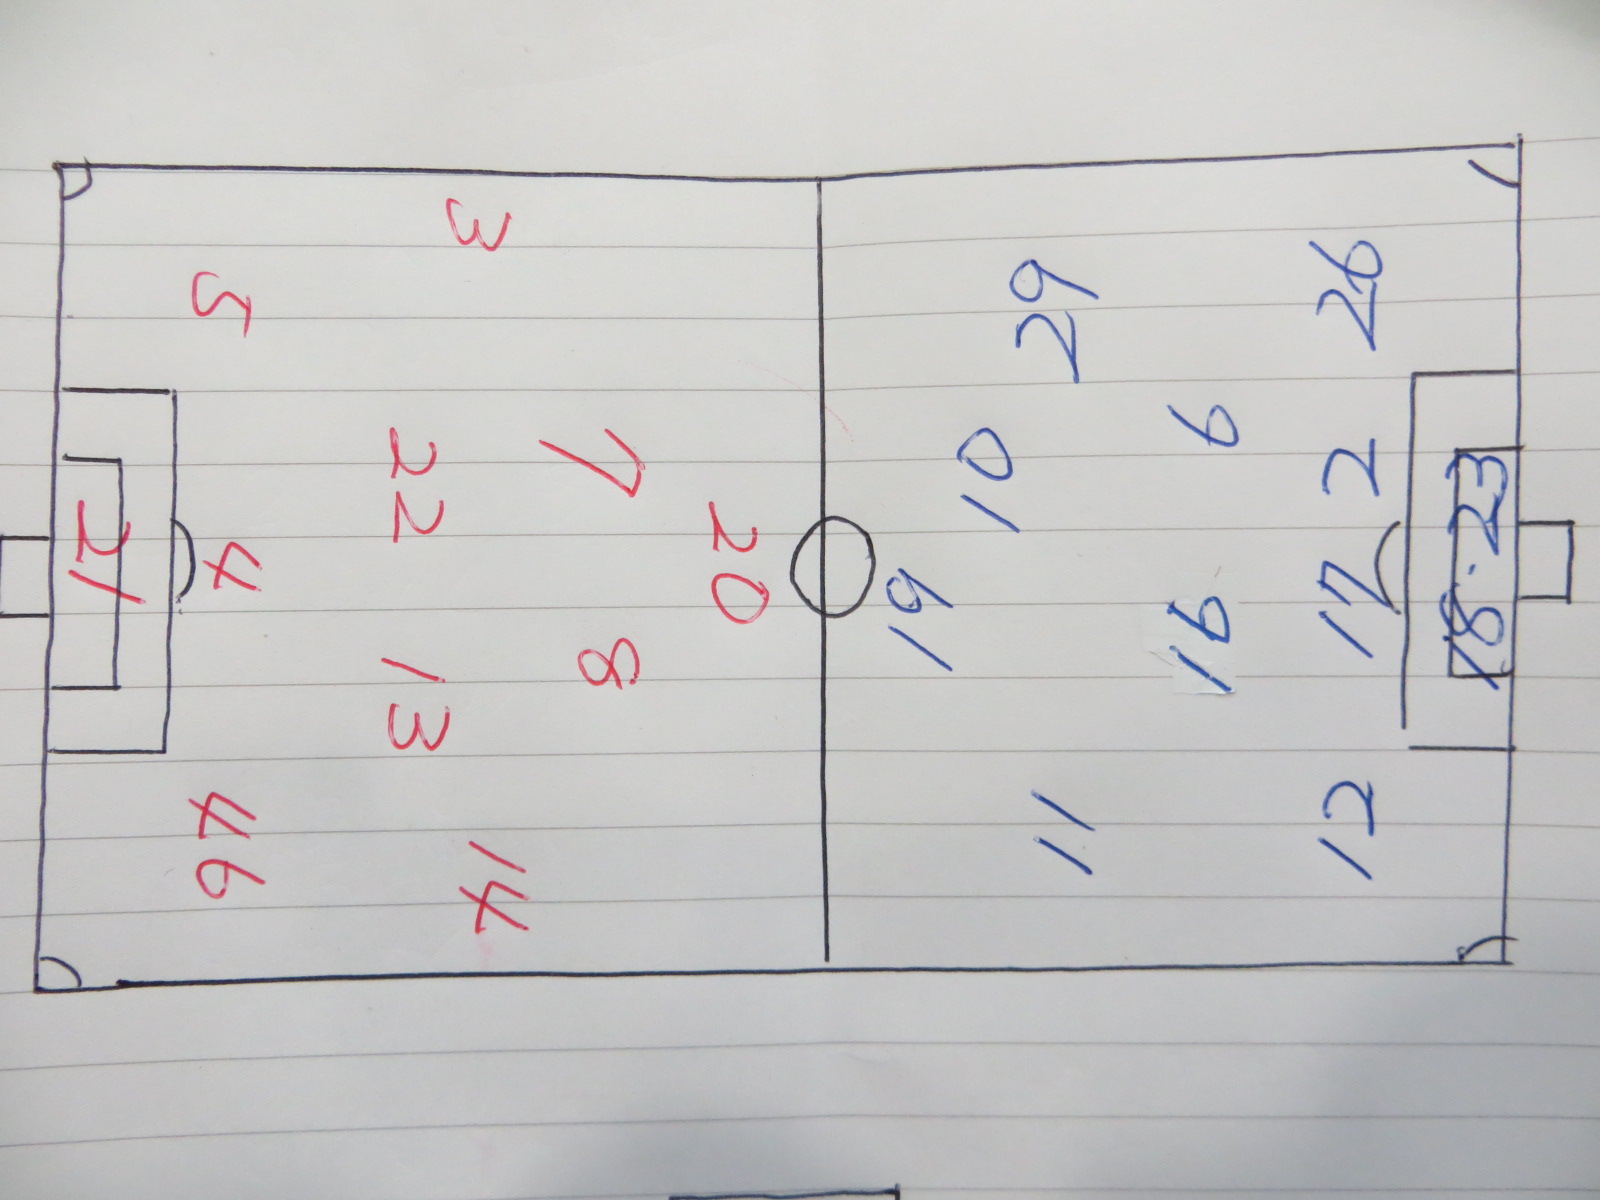 20
7 8
3 14
22 13
5 4 46
21
19 10
11 29
16 6
12 17 2 26
18·23